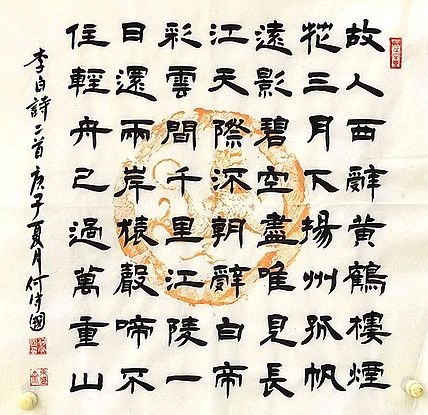 故人西辭黃鶴樓煙
花三月下揚州孤帆
遠影碧空盡唯見長
江天際流朝辭白帝
彩雲間千里江陵一
日還兩岸猿聲啼不
住輕舟已過萬重山
李白詩二首庚子夏月何國